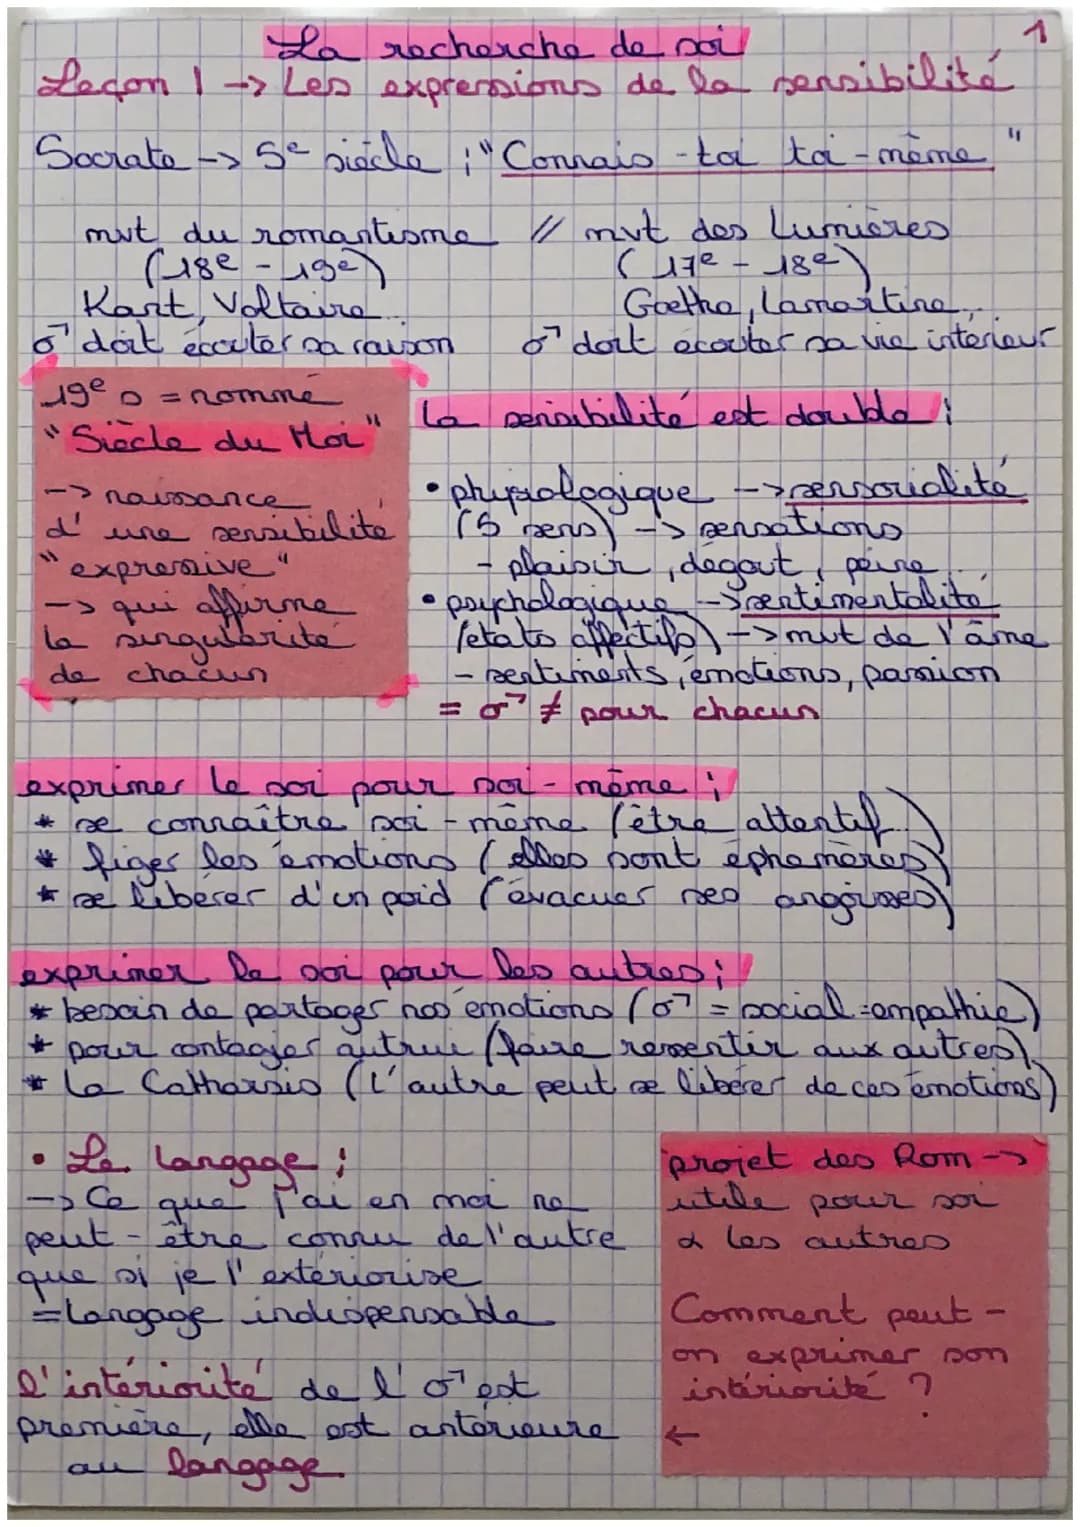 1
La recherche de soi
Leçon 1 -> Les expressions de la sensibilité
Socrate -> 5e siècle ; "Connais-toi toi-même"
mvt du romantisme // mvt des Lumières
(18e - 19e) (17e - 18e)
Kant, Voltaire... Goethe, Lamartine...
♂ doit écouter sa raison ♂ doit écouter sa vie intérieur
19e s = nommé
"Siècle du Moi"
-> naissance
d'une sensibilité
"expressive"
-> qui affirme
la singularité
de chacun
La sensibilité est double ;
• physiologique -> sensorialité
(5 sens) -> sensations
- plaisir, dégout, peine...
• psychologique -> sentimentalité
(états affectifs) -> mvt de l'âme
- sentiments, émotions, passion
= ♂ ≠ pour chacun
exprimer le soi pour soi-même ;
* se connaître soi-même (être attentif...)
* figer les émotions (elles sont éphémères)
* se libérer d'un poid (évacuer ses angoisses)
exprimer le soi pour les autres ;
* besoin de partager nos émotions (♂ = social = empathie)
* pour contagier autrui (faire ressentir aux autres)
* La Catharsis (L'autre peut se libérer de ces émotions)
• Le langage ;
-> Ce que j'ai en moi ne
peut-être connu de l'autre
que si je l'extériorise
= Langage indispensable
l'intériorité de l'♂ est
première, elle est antérieure
au langage
projet des Rom ->
utile pour soi
& les autres
Comment peut-
on exprimer son
intériorité ?
←